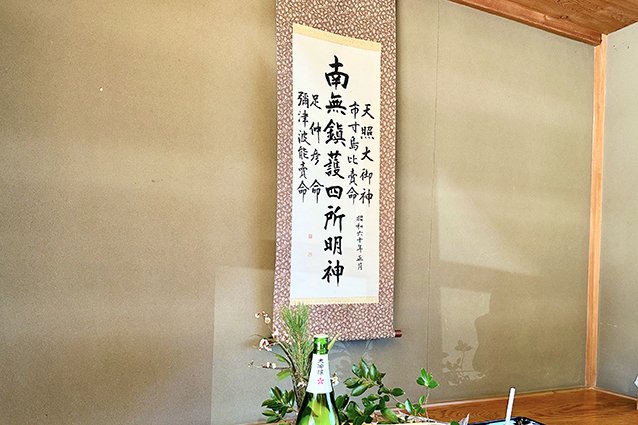 天照大御神
市寸島比賣命
南無鎮護四所明神
足仲彦命
彌津波能賣命
昭和六十年正月